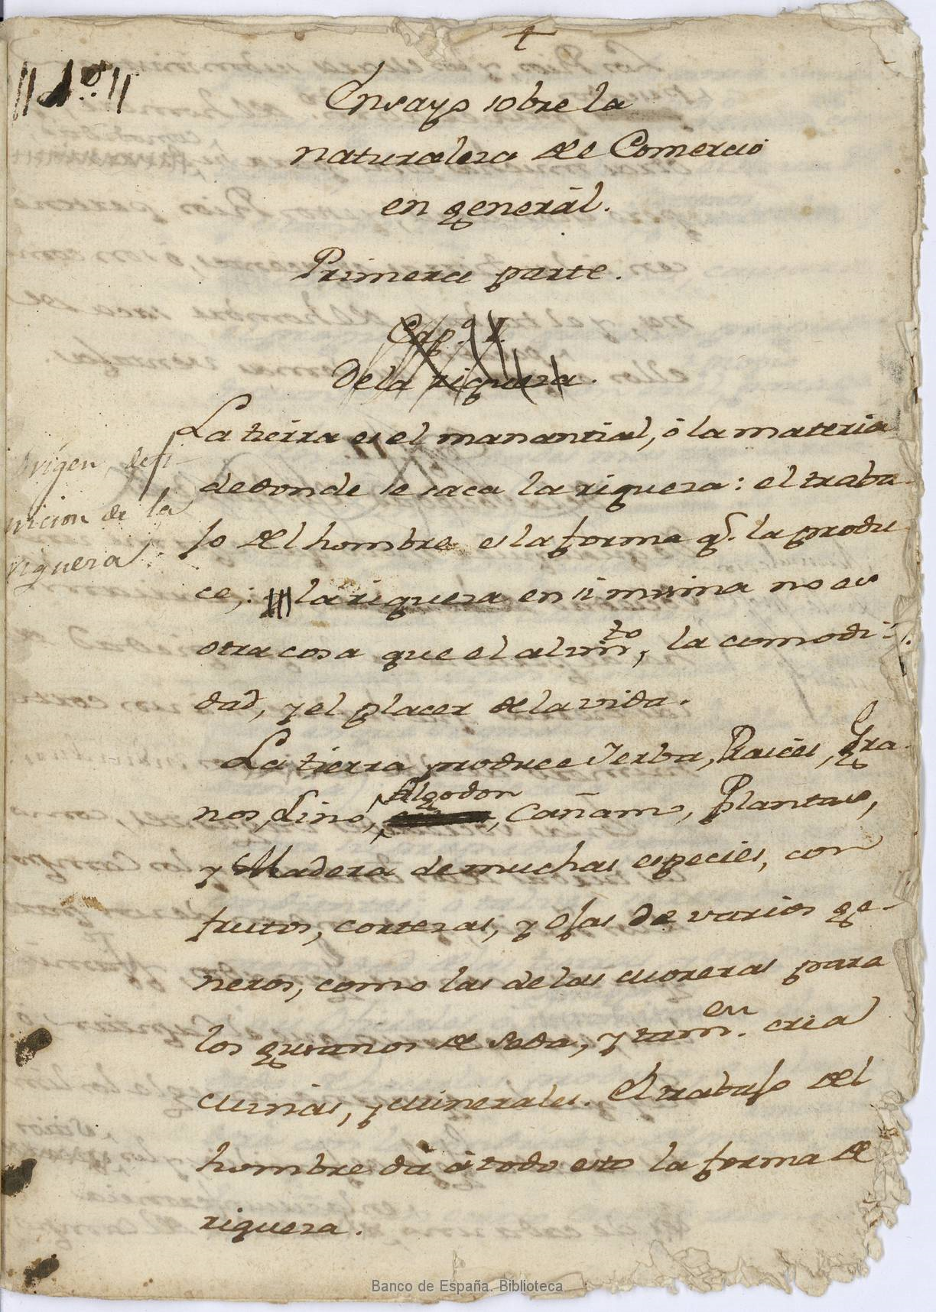 Nº. 1
Ensayo sobre la
naturaleza del Comercio
en generál.
Primera parte.
Cap.º I.
De la riqueza.
Origen, defi-
nicion de la
riqueza.
La tierra es el manantial, ó la materia
de donde se saca la riqueza: el traba-
jo del hombre es la forma q.e la produ-
ce; la riqueza en si misma no es
otra cosa que el alim.to, la comodi-
dad, y el placer de la vida.
La tierra produce Yerba, Raices, Gra-
nos, Lino, Algodon, Cañamo, Plantas,
y Madera de muchas especies, con
frutos, cortezas, y ojas de varios ge-
neros, como las de las moreras para
los gusanos de seda, y tam.en cria
minas, y minerales. El trabajo del
hombre dá á todo esto la forma de
riqueza.
Banco de España. Biblioteca